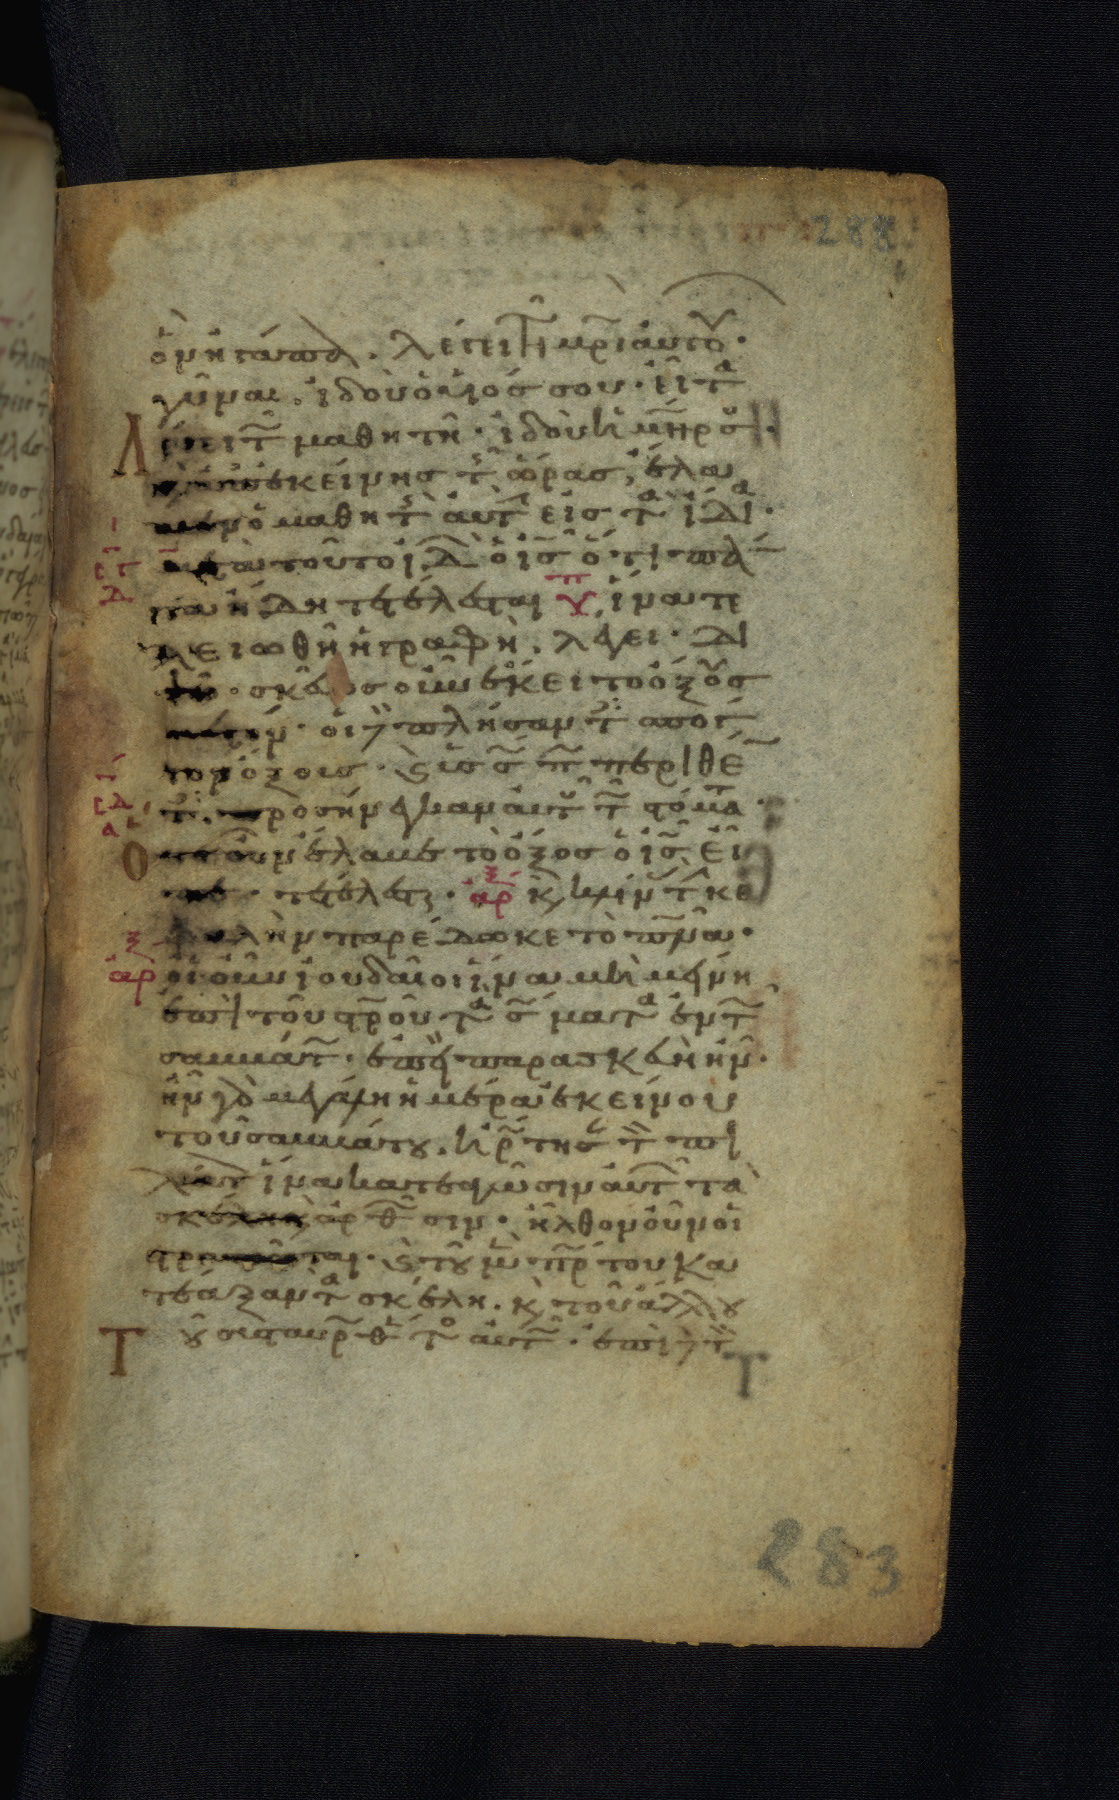 288
ὃν ἠγάπα. λέγει τῇ μρὶ αὐτοῦ.
γύναι. ἰδοὺ ὁ υἱός σου. εἶτα
λέγει τῷ μαθητῇ. ἰδοὺ ἡ μήρ σου.
ἐκείνης τῆς ὥρας, ἔλα
ὁ μαθητὴς αὐτὴν εἰς τὰ ἴδια.
τοῦτο ἰδὼν ὁ ις ὅτι πάντα
ἤδη τετέλεσται ἵνα τε
λειωθῇ ἡ γραφὴ. λέγει. δι
ψῶ. σκεῦος οὖν ἔκειτο ὄξους
μεστόν. οἱ δὲ πλήσαντες σπόγγον
ὄξους. καὶ ὑσσώπῳ περιθέν
τες. προσήνεγκαν αὐτοῦ τῷ στόματι.
ὅτε οὖν ἔλαβε τὸ ὄξος ὁ ις εἶ
πε. τετέλεσται. ἀρ κλίνας τὴν κε
φαλὴν παρέδωκε τὸ πνα.
ἀρ οἱ οὖν ἰουδαῖοι ἵνα μὴ μείνῃ
ἐπὶ τοῦ στροῦ τὰ σώματα ἐν τῷ
σαββάτῳ. ἐπεὶ παρασκευὴ ἦν.
ἦν γὰρ μεγάλη ἡ ἡμέρα ἐκείνου
τοῦ σαββάτου. ἠρώτησαν τὸν πι
λάτον ἵνα κατεαγῶσιν αὐτῶν τὰ
σκέλη καὶ ἀρθῶσιν. ἦλθον οὖν οἱ
στρατιῶται. καὶ τοῦ μὲν πρώτου κα
τέαξαν τὰ σκέλη. καὶ τοῦ ἄλλου
τοῦ συσταυρωθέντος αὐτῷ. ἐπὶ δὲ τὸν
283